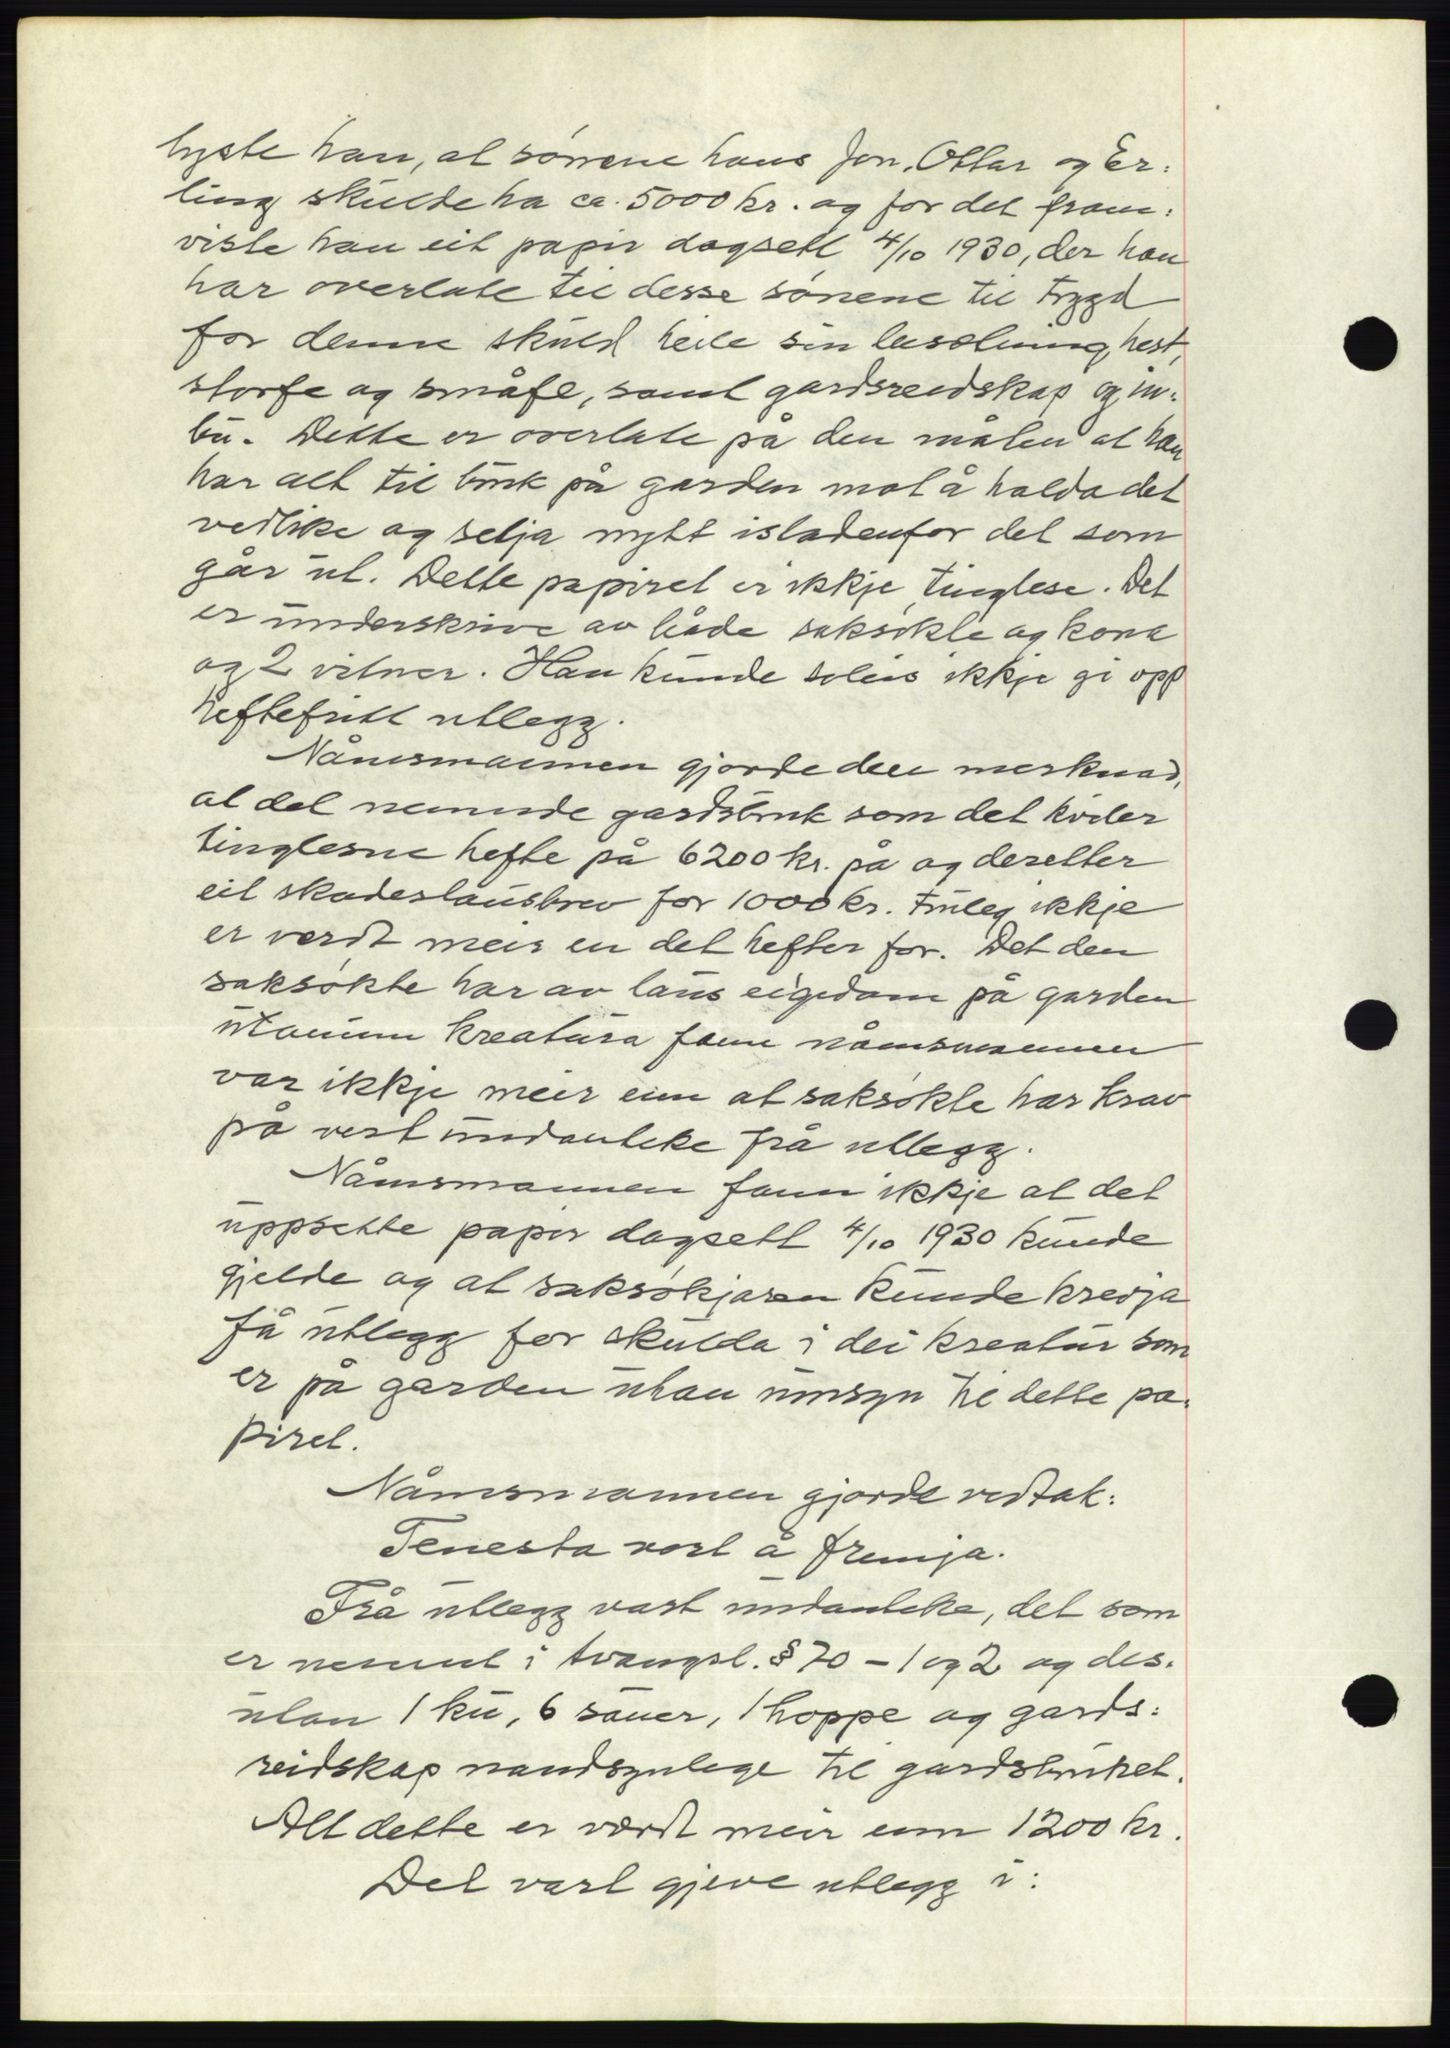 lyste han, at sønene hans Jon, Ottar og Er:
ling skulde ha ca. 5000 kr. og for det fram:
viste han eit papir dagsett 4/10 1930, der han
har overlate til desse sønene til trygd
for denne skuld heile sin busetning, hest,
storfe og småfe, samt gardsreidskap og in:
bu. Dette er overlate på den måten at han
har alt til bruk på garden mot å halda det
vedlike og setja nytt istadenfor det som
går ut. Dette papiret er ikkje tinglese. Det
er underskrive av både saksøkte og kona
og 2 vitner. Han kunde soleis ikkje gi opp
heftefritt utlegg.
Nåmsmannen gjorde den merknad,
at det nemnde gardsbruk som det kviler
tinglesne hefte på 6200 kr. på og deretter
eit skadeslausbrev for 1000 kr. truleg ikkje
er verdt meir en det hefter for. Det den
saksøkte har av laus eigedom på garden
utanum kreatura fann nåmsmannen
var ikkje meir enn at saksøkte har krav
på vert undanteke frå utlegg.
Nåmsmannen fann ikkje at det
uppsette papir dagsett 4/10 1930 kunde
gjelde og at saksøkjaren kunde krevja
få utlegg for skulda i dei kreatur som
er på garden utan umsyn til dette pa:
piret.
Nåmsmannen gjorde vedtak:
Tenesta vert å fremja.
Frå utlegg vart undanteke, det som
er nemnt i tvangsl. § 70 - 1 og 2 og des:
utan 1 ku, 6 sauer, 1 hoppe og gards:
reidskap naudsynlege til gardsbruket.
Alt dette er verdt meir enn 1200 kr.
Det vart gjeve utlegg i: